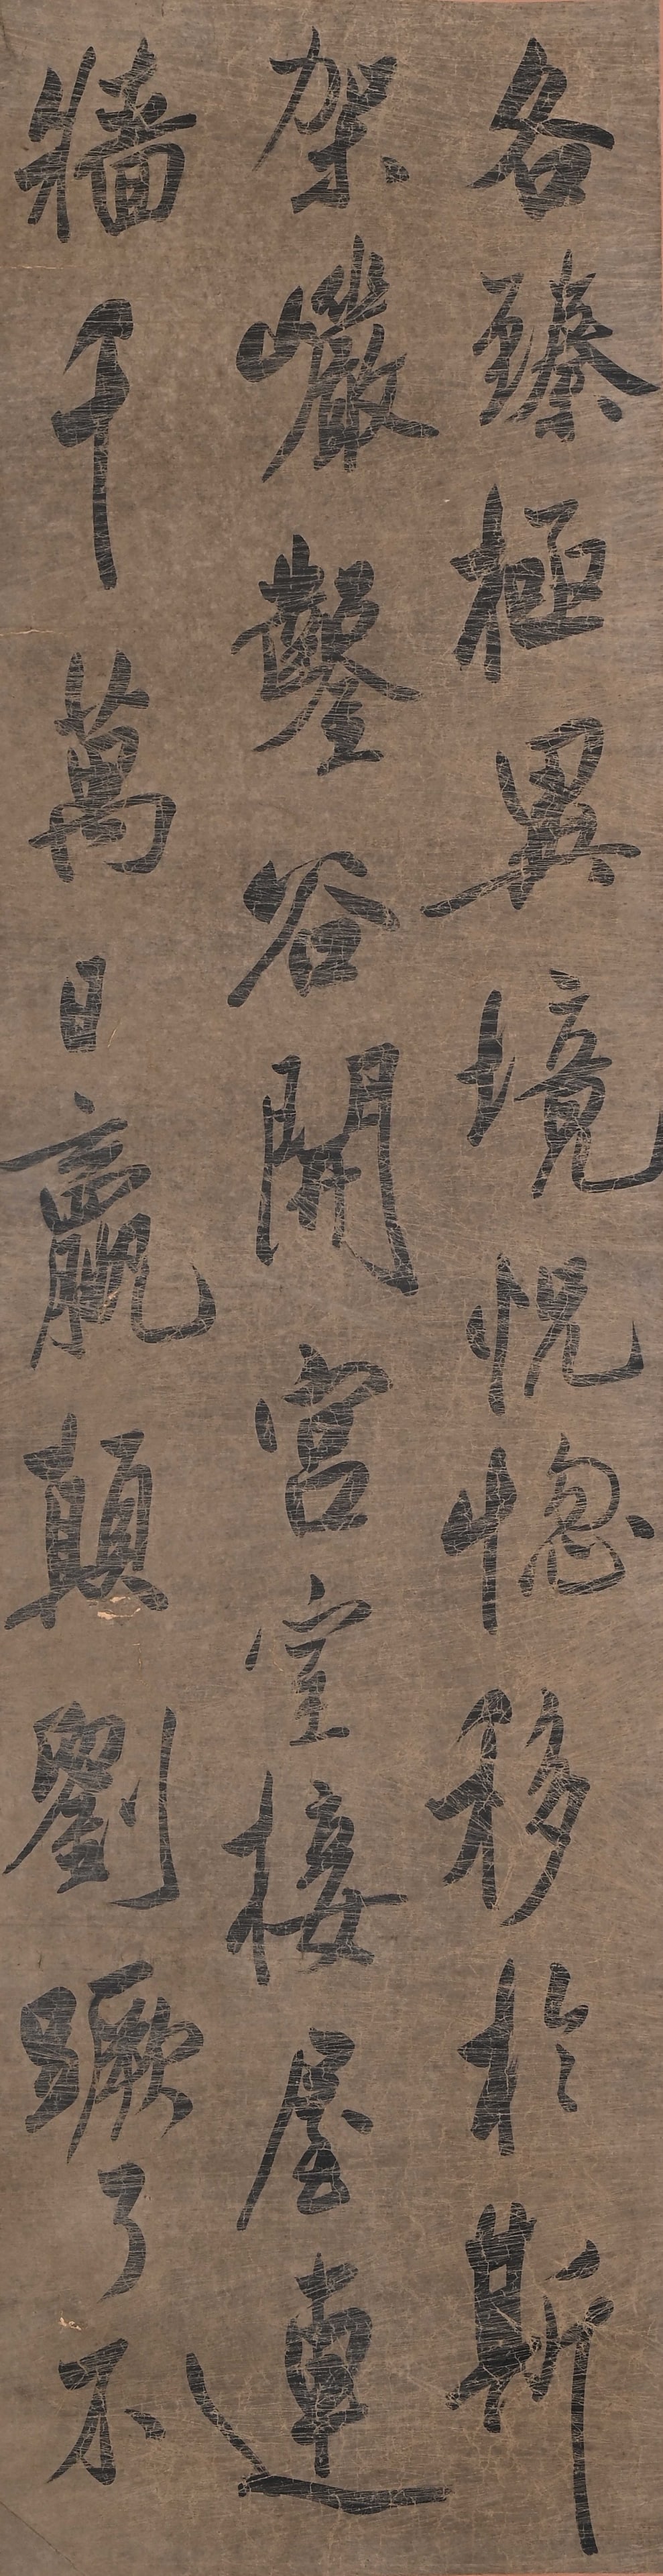 各臻極異境怳惚移於斯
架巖鑿谷開宮室接屋連
牆千萬日嬴顛劉蹶了不